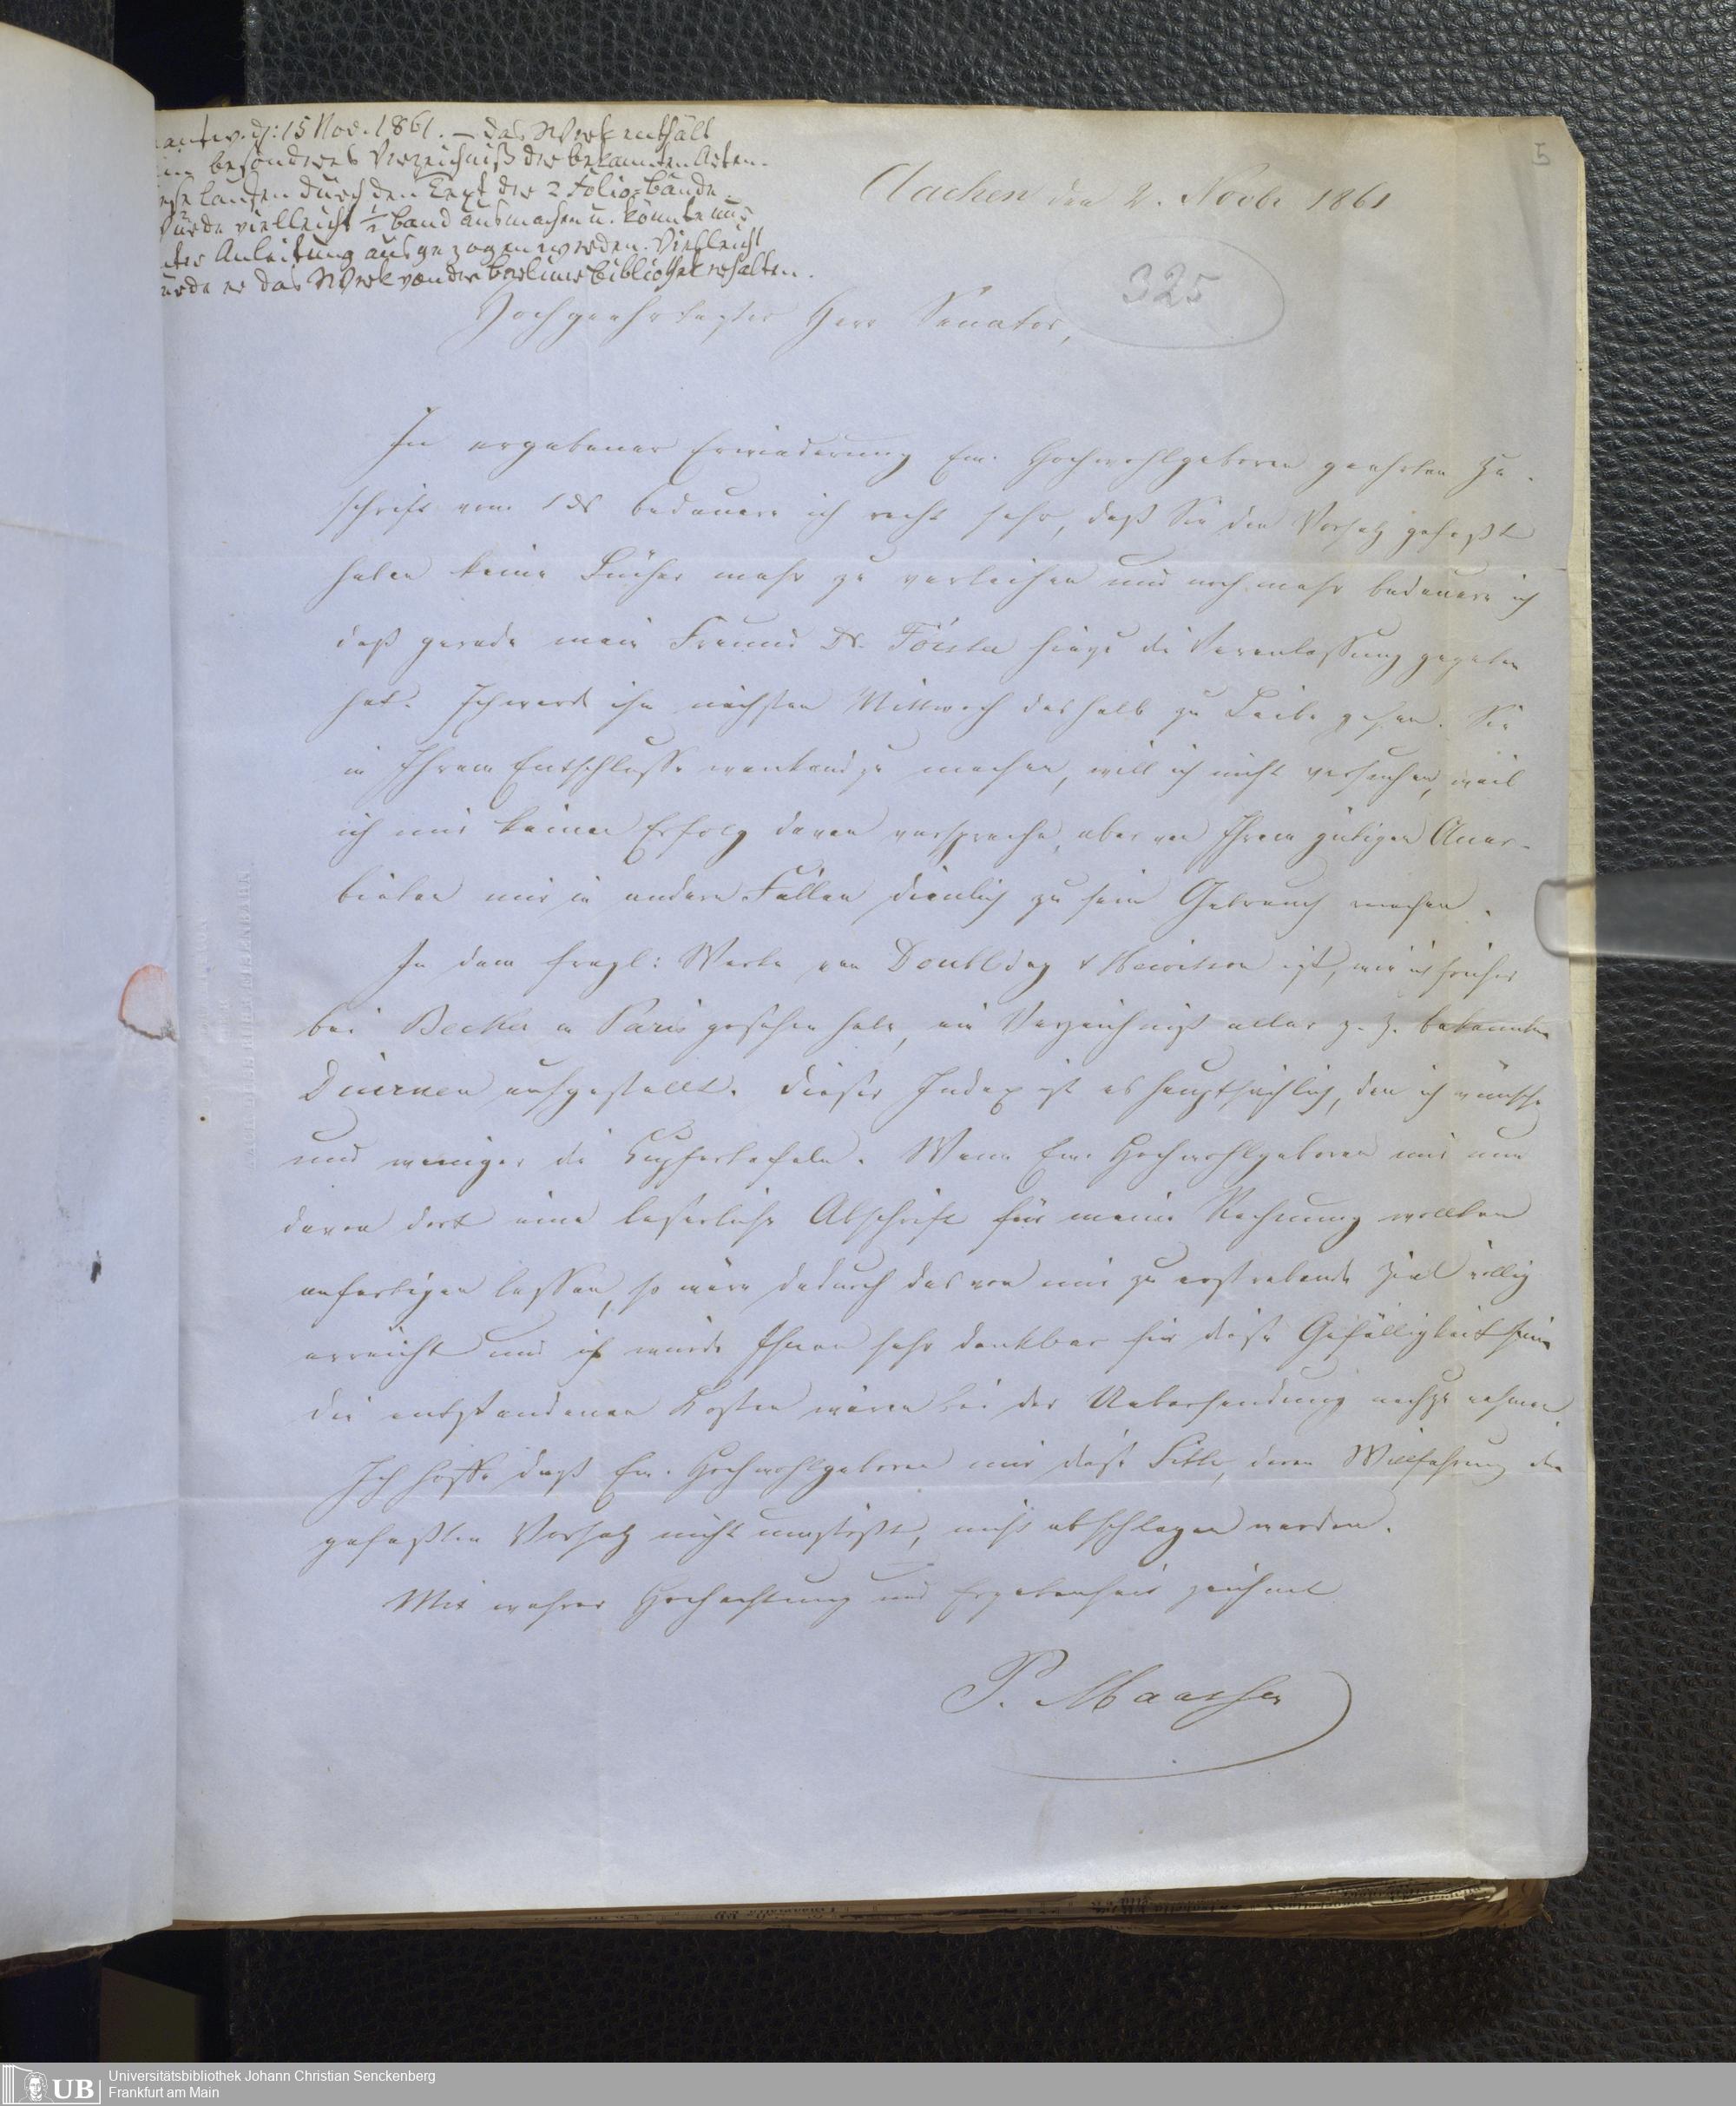 antw. d: 15 Nov. 1861. — das Werk enthält
besonderes Verzeichniß der bekannten Arten.
laufen durch den Text der 2 Folio-bände.
würde vielleicht ½ band ausmachen u. könnte nur
Anleitung ausgezogen werden. Vielleicht
er das Werk von der berliner bibliothek erhalten.
5
Aachen den 2. Novbr 1861
325
Hochgeehrtester Herr Senator,
In ergebener Erwiederung Ew. Hochwohlgeboren geehrten Zu-
schrift vom 1 ds bedauere ich recht sehr, daß Sie den Vorsatz gefaßt
haben keine Bücher mehr zu verleihen und noch mehr bedauere ich
daß gerade mein Freund Dr. Förster hiezu die Veranlassung gegeben
hat. Ich werde ihn nächsten Mittwoch deshalb zu Leibe gehen. Sie
in Ihrem Entschlusse wankend zu machen, will ich nicht versuchen, weil
ich mir keinen Erfolg davon verspreche, aber von Ihrem gütigen Aner-
bieten mir in andern Fällen dienlich zu sein Gebrauch machen.
In dem fragl: Werke von Doubleday & Hewitson ist, wie ich früher
bei Becker in Paris gesehen habe, ein Verzeichniß aller z. Z. bekannten
Diurnen aufgestellt. Dieser Index ist es hauptsächlich, den ich wünsche
und weniger die Kupfertafeln. Wenn Ew. Hochwohlgeboren mir nun
davon dort eine leserliche Abschrift für meine Rechnung wollten
anfertigen lassen, so wäre dadurch das von mir zu erstrebende Ziel völlig
erreicht und ich würde Ihnen sehr dankbar für diese Gefälligkeit sein
die entstandenen Kosten wären bei der Uebersendung nachzunehmen.
Ich hoffe daß Ew. Hochwohlgeboren mir diese Bitte, deren Willfahrung den
gefaßten Vorsatz nicht umstößt, nicht abschlagen werden.
Mit wahrer Hochachtung und Ergebenheit zeichnet
P. Maassen
UB
Universitätsbibliothek Johann Christian Senckenberg
Frankfurt am Main